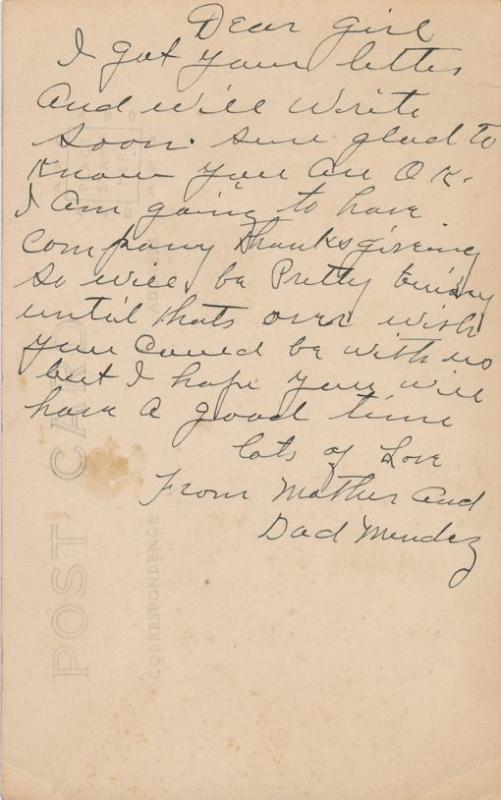 Dear girl
I got your letter
And will write
soon. sure glad to
Know you are O K.
I am going to have
Company Thanksgiving
so will be Pretty buisy
until thats over wish
you could be with us
but I hope you will
have a good time
lots of Love
From Mother and
Dad Mendez
POST CARD
CORRESPONDENCE